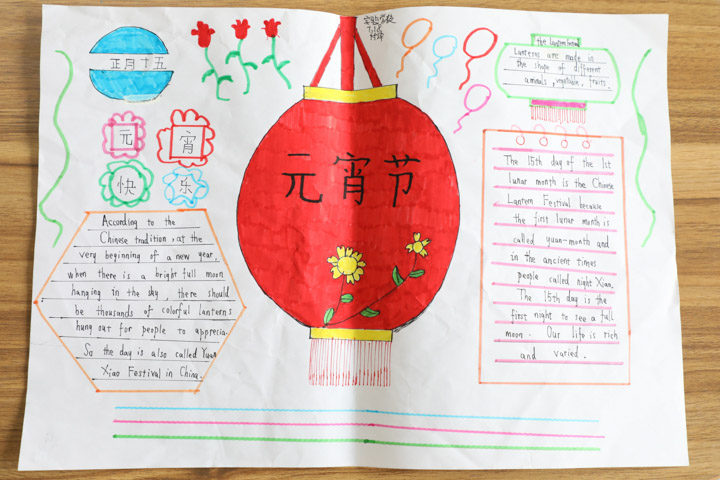 正月十五
元 宵
快 乐
According to the
Chinese tradition, at the
very beginning of a new year,
when there is a bright full moon
hanging in the sky, there should
be thousands of colorful lanterns
hung out for people to apprecia.
So the day is also called Yuan
Xiao Festival in China.
元宵节
实验学校
the Lantern
Lanterns are made in
the shape of different
animals, vegetable, fruits.
The 15th day of the 1st
lunar month is the Chinese
Lantern Festival because
the first lunar month is
called yuan-month and
in the ancient times
people called night Xiao.
The 15th day is the
first night to see a full
moon. Our life is rich
and varied.